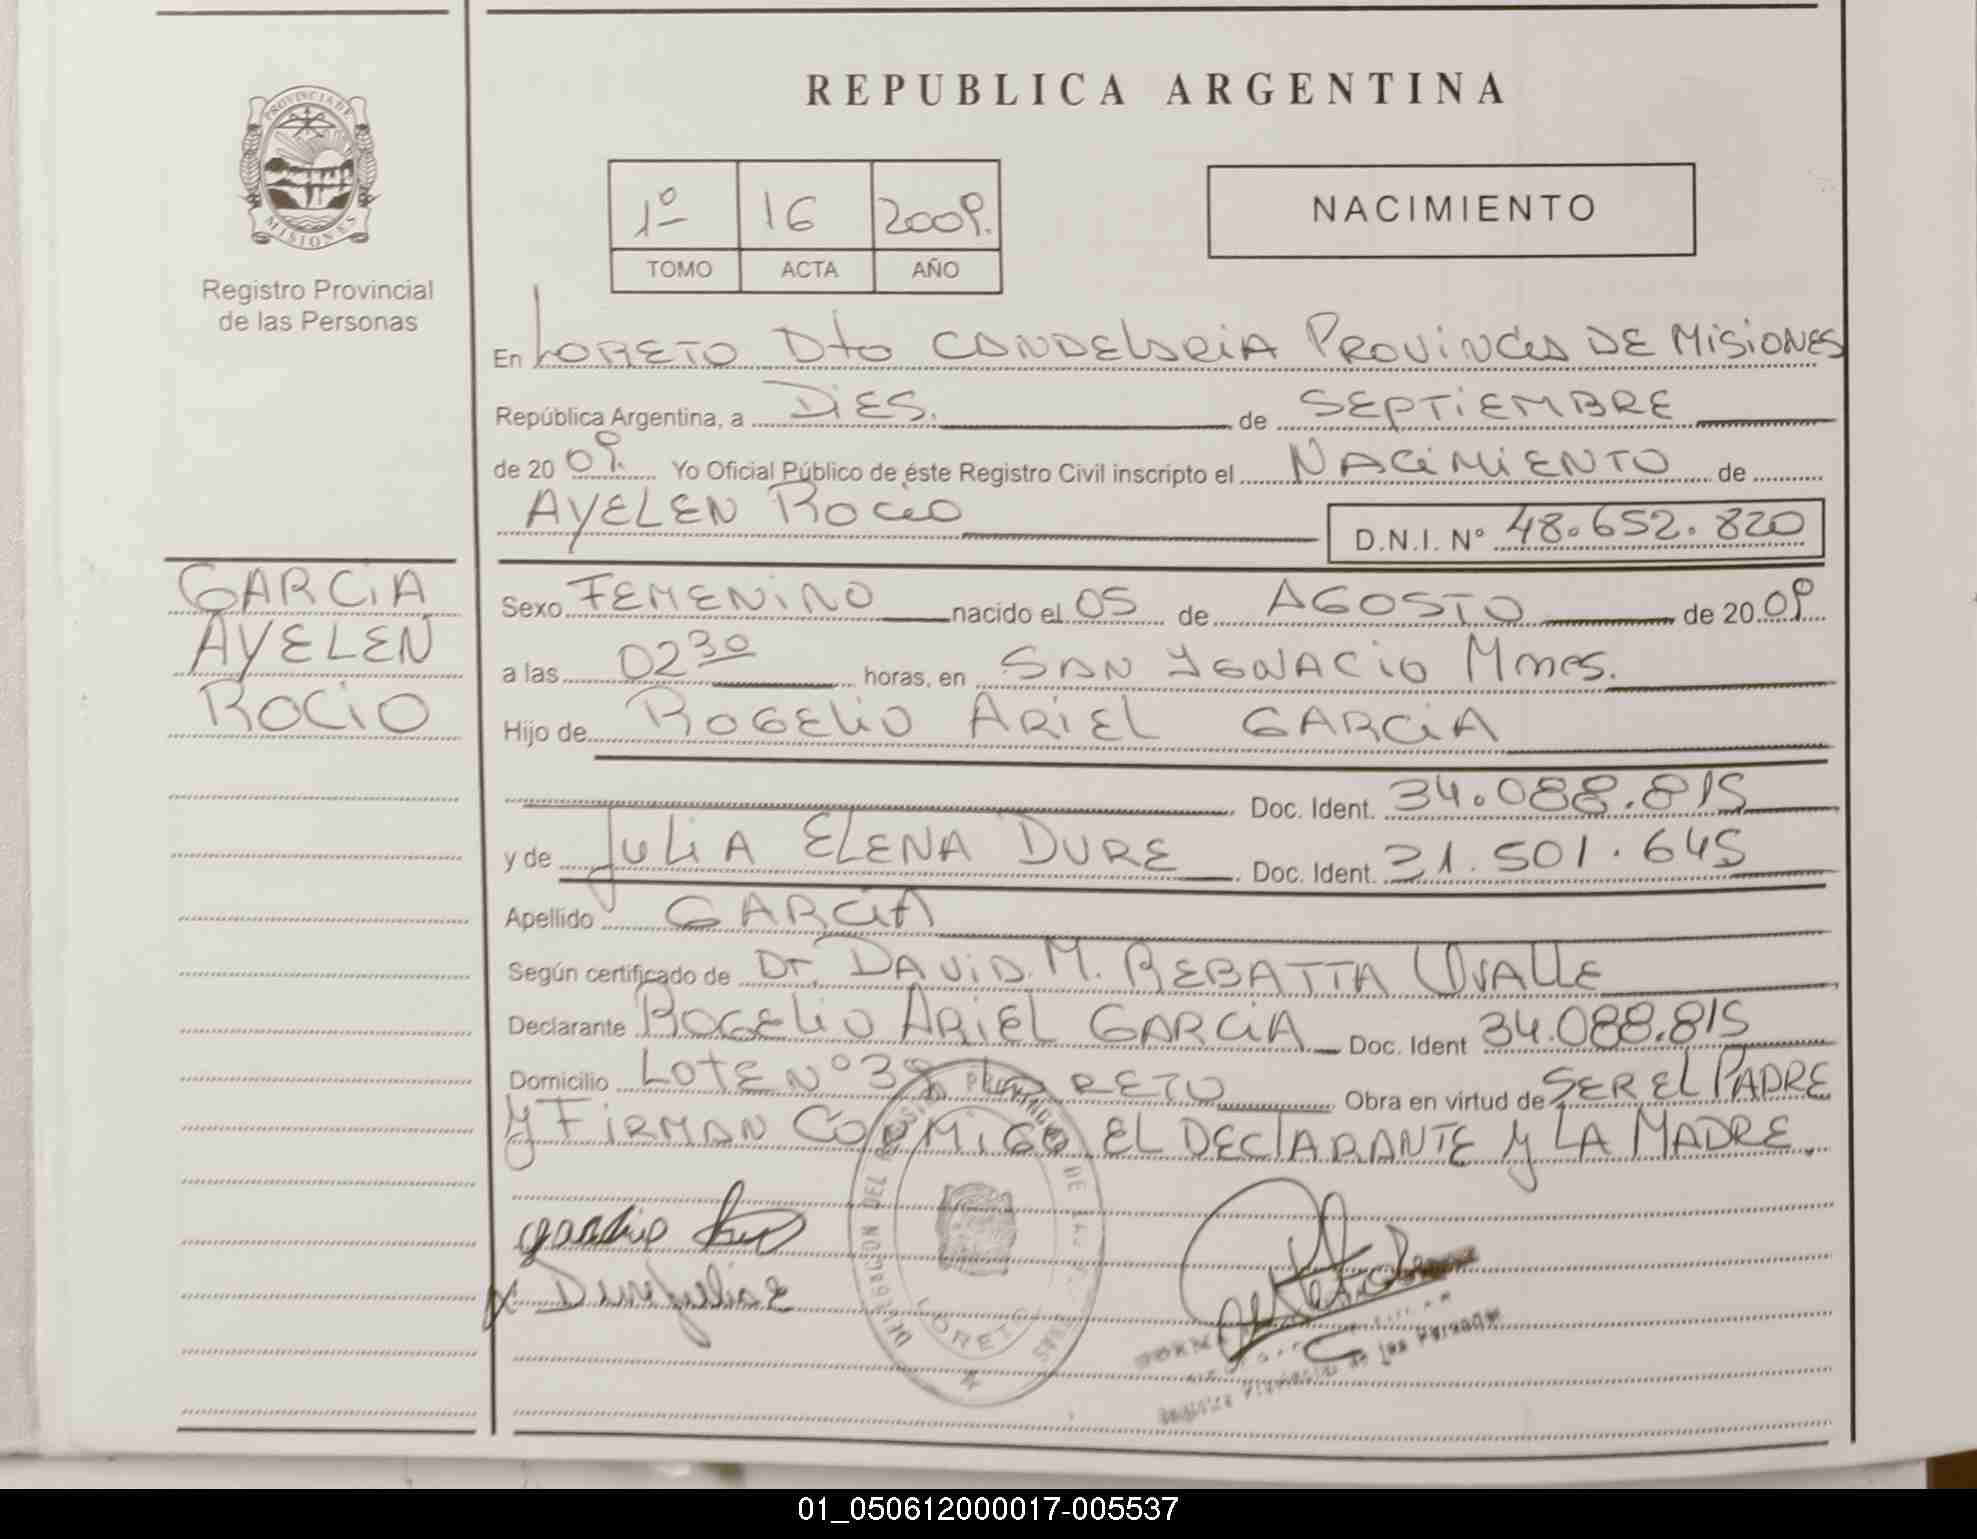 REPUBLICA ARGENTINA
PROVINCIA DE
MISIONES
Registro Provincial
de las Personas
1º 16 2009.
TOMO ACTA AÑO
NACIMIENTO
En LORETO Dto CANDELARIA PROVINCIA DE MISIONES
República Argentina, a DIES. de SEPTIEMBRE
de 2009. Yo Oficial Público de éste Registro Civil inscripto el NACIMIENTO de
AYELEN ROCIO
D.N.I. Nº 48.652.820
GARCIA
AYELEN
ROCIO
Sexo FEMENINO nacido el 05 de AGOSTO de 2009
a las 02 30 horas, en SAN YGNACIO Mnes.
Hijo de ROGELIO ARIEL GARCIA
Doc. Ident. 34.088.815
y de JULIA ELENA DURE Doc. Ident. 31.501.645
Apellido GARCIA
Según certificado de Dr. DAVID. M. REBATTA OVALLE
Declarante ROGELIO ARIEL GARCIA Doc. Ident 34.088.815
Domicilio LOTE Nº 38 LORETO Obra en virtud de SER EL PADRE
Y FIRMAN CONMIGO EL DECLARANTE Y LA MADRE.
DELEGACION DEL
LORETO
Provincial de las Personas
01_050612000017-005537